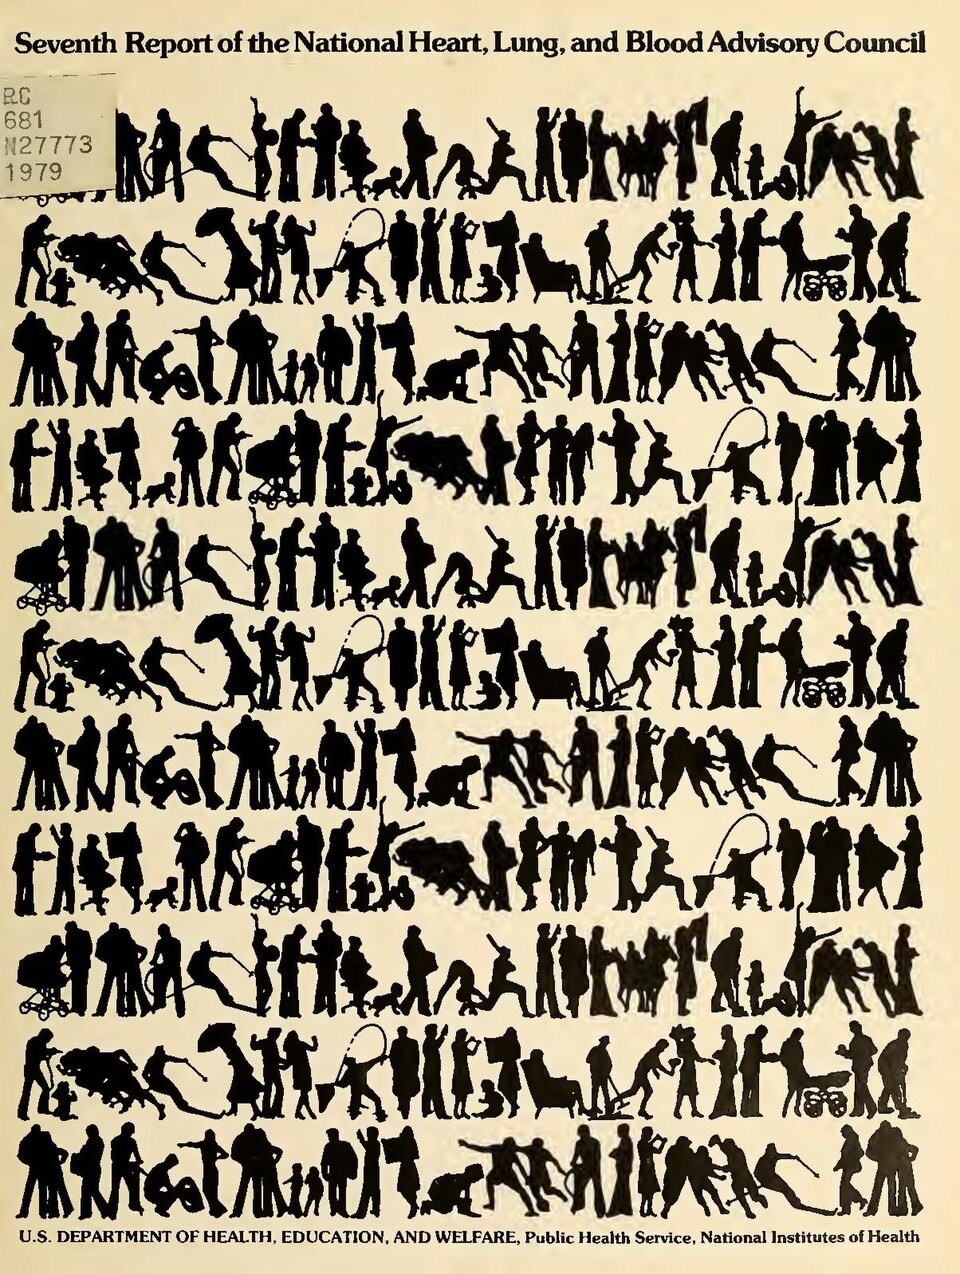 Seventh Report of the National Heart, Lung, and Blood Advisory Council
RC
681
N27773
1979
U.S. DEPARTMENT OF HEALTH, EDUCATION, AND WELFARE, Public Health Service, National Institutes of Health